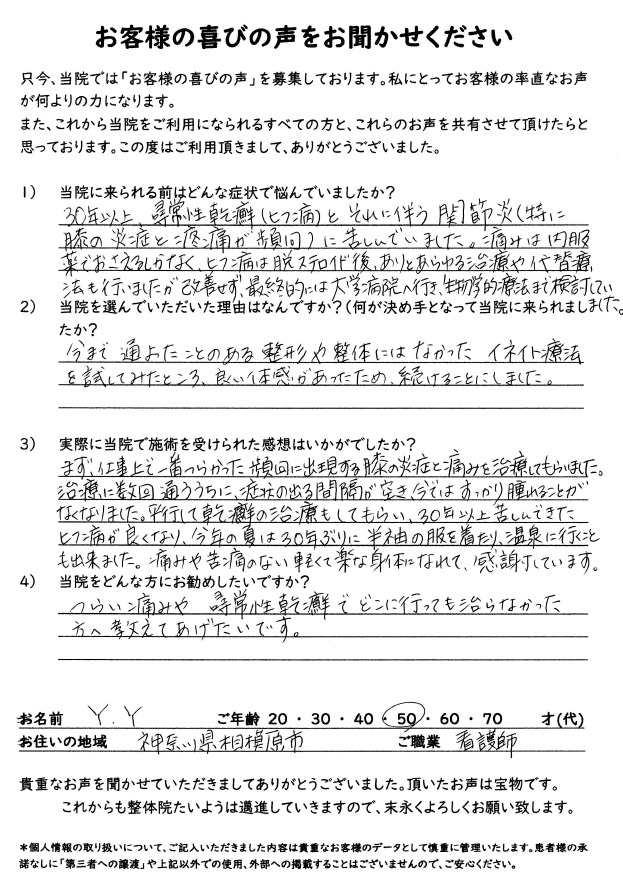 お客様の喜びの声をお聞かせください
只今、当院では「お客様の喜びの声」を募集しております。私にとってお客様の率直なお声
が何よりの力になります。
また、これから当院をご利用になられるすべての方と、これらのお声を共有させて頂けたらと
思っております。この度はご利用頂きまして、ありがとうございました。
1) 当院に来られる前はどんな症状で悩んでいましたか?
30年以上、尋常性乾癬(ヒフ病)と それに伴う 関節炎(特に
膝の炎症と疼痛が頻回)に苦しんでいました。痛みは内服
薬でおさえるしかなく、ヒフ病は脱ステロイド後、ありとあらゆる治療や代替療
法も行いましたが改善せず、最終的には大学病院へ行き、生物学的療法まで検討してい
ました。
2) 当院を選んでいただいた理由はなんですか?(何が決め手となって当院に来られまし
たか?
今まで通よたことのある整形や整体にはなかった イネイト療法
を試してみたところ、良い体感があったため、続けることにしました。
3) 実際に当院で施術を受けられた感想はいかがでしたか?
まず、仕事上で一番つらかった頻回に出現する膝の炎症と痛みを治療してもらいました。
治療に数回通ううちに、症状の出る間隔が空き今ではすっかり腫れることが
なくなりました。平行して乾癬の治療もしてもらい、30年以上苦しんできた
ヒフ病が良くなり、今年の夏は30年ぶりに半袖の服を着たり、温泉に行くこと
も出来ました。痛みや苦痛のない軽くて楽な身体になれて、感謝しています。
4) 当院をどんな方にお勧めしたいですか?
つらい痛みや 尋常性乾癬でどこに行っても治らなかった
方へ教えてあげたいです。
お名前 Y.Y ご年齢 20・30・40・50・60・70 才(代)
お住いの地域 神奈川県相模原市 ご職業 看護師
貴重なお声を聞かせていただきましてありがとうございました。頂いたお声は宝物です。
これからも整体院たいようは邁進していきますので、末永くよろしくお願い致します。
*個人情報の取り扱いについて、ご記入いただきました内容は貴重なお客様のデータとして慎重に管理いたします。患者様の承
諾なしに「第三者への譲渡」や上記以外での使用、外部への掲載することはございませんので、ご安心ください。